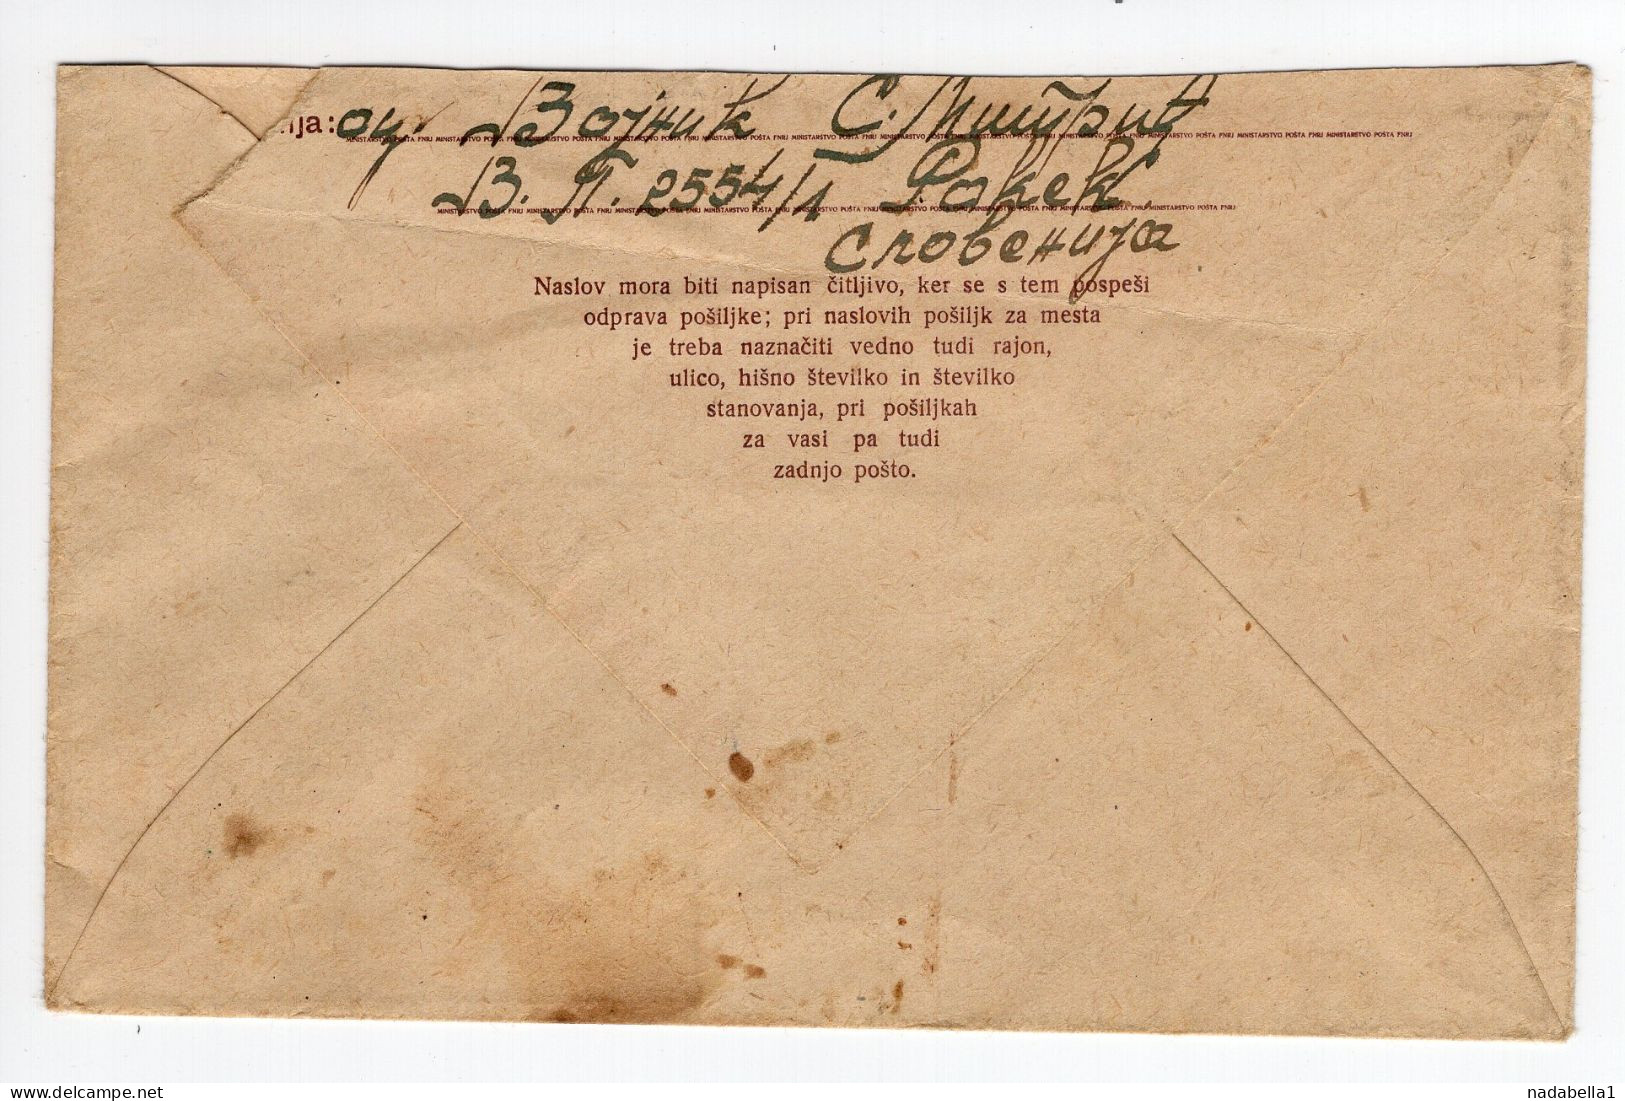 nja: од Војник С. Митрић
MINISTARSTVO POŠTA FNRJ MINISTARSTVO POŠTA FNRJ MINISTARSTVO POŠTA FNRJ
В. П. 2554/1 Ракек
MINISTARSTVO POŠTA FNRJ MINISTARSTVO POŠTA FNRJ MINISTARSTVO POŠTA FNRJ
Словенија
Naslov mora biti napisan čitljivo, ker se s tem pospeši
odprava pošiljke; pri naslovih pošiljk za mesta
je treba naznačiti vedno tudi rajon,
ulico, hišno številko in številko
stanovanja, pri pošiljkah
za vasi pa tudi
zadnjo pošto.
delcampe.net
nadabella1